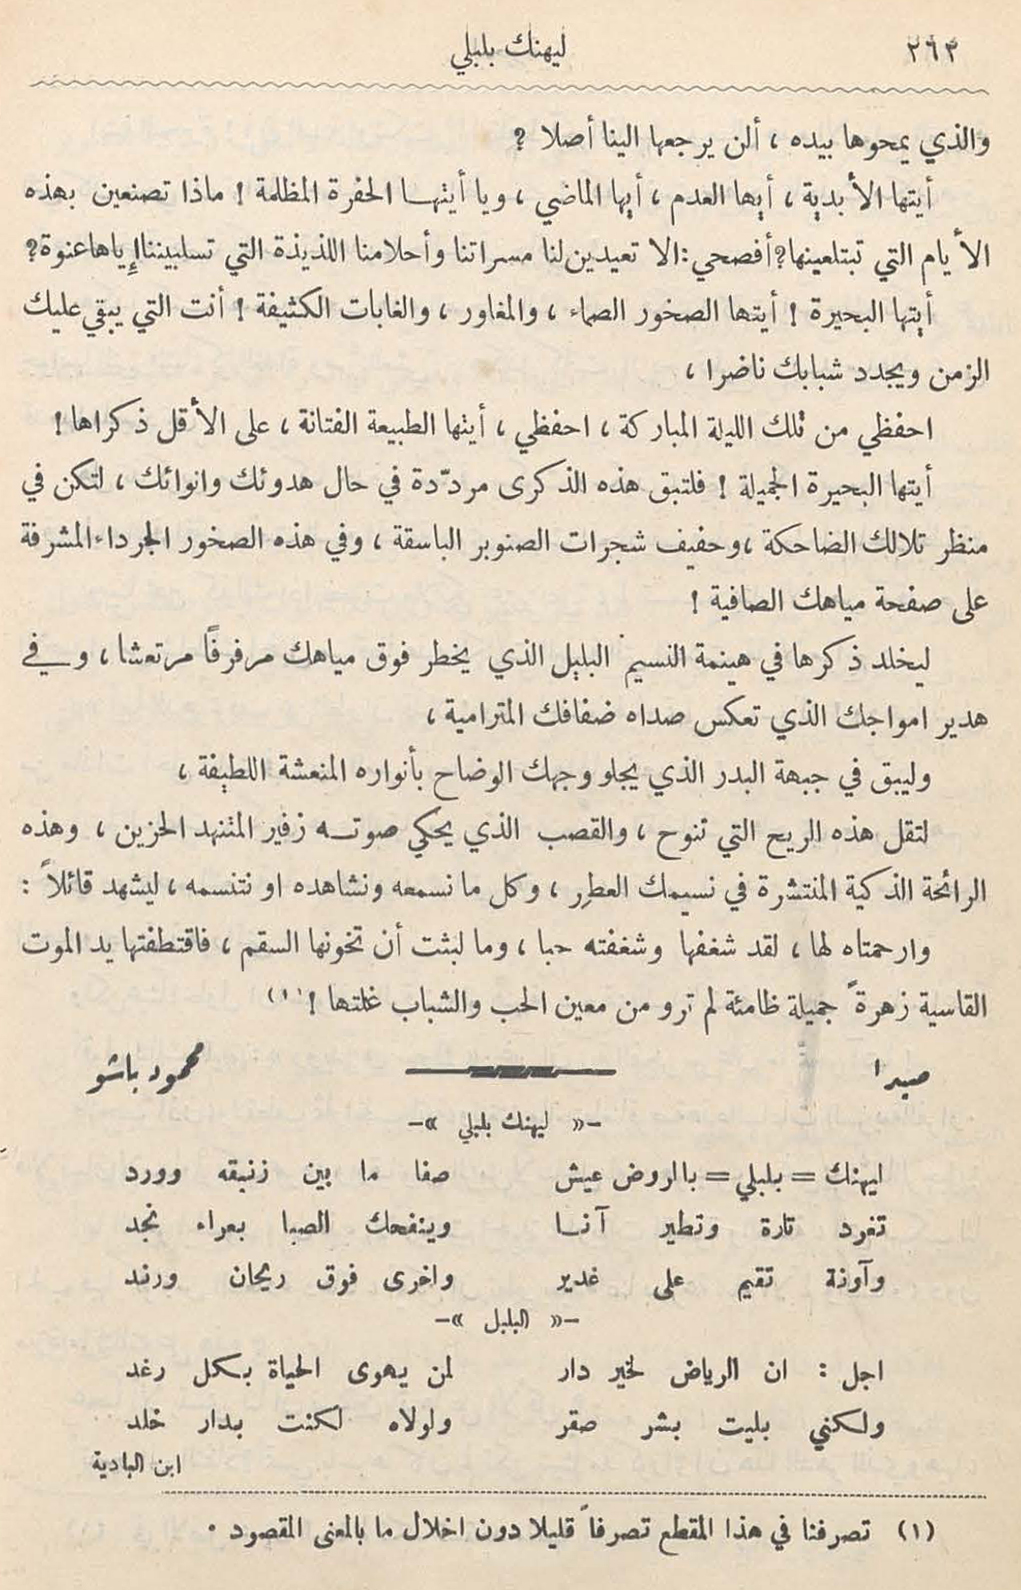 ٢٦٣ ليهنك بلبلي
والذي يمحوها بيده ، ألن يرجعها الينا أصلا ؟
أيتها الأبدية ، أيها العدم ، أيها الماضي ، ويا أيتها الحفرة المظلمة ! ماذا تصنعين بهذه
الأيام التي تبتلعينها؟ أفصحي : الا تعيدين لنا مسراتنا وأحلامنا اللذيذة التي تسلبيننا إياها عنوة؟
أيتها البحيرة ! أيتها الصخور الصماء ، والمغاور ، والغابات الكثيفة ! أنت التي يبقي عليك
الزمن ويجدد شبابك ناضرا ،
احفظي من تلك الليلة المباركة ، احفظي ، أيتها الطبيعة الفتانة ، على الأقل ذكراها !
أيتها البحيرة الجميلة ! فلتبق هذه الذكرى مردّدة في حال هدوئك وانوائك ، لتكن في
منظر تلالك الضاحكة ، وحفيف شجرات الصنوبر الباسقة ، وفي هذه الصخور الجرداء المشرفة
على صفحة مياهك الصافية !
ليخلد ذكرها في هينمة النسيم البليل الذي يخطر فوق مياهك مرفرفاً مرتعشا ، وفي
هدير امواجك الذي تعكس صداه ضفافك المترامية ،
وليبق في جبهة البدر الذي يجلو وجهك الوضاح بأنواره المنعشة اللطيفة ،
لتقل هذه الريح التي تنوح ، والقصب الذي يحكي صوته زفير المتنهد الحزين ، وهذه
الرائحة الذكية المنتشرة في نسيمك العطر ، وكل ما نسمعه ونشاهده او نتنسمه ، ليشهد قائلاً :
وارحمتاه لها ، لقد شغفها وشغفته حبا ، وما لبثت أن تخونها السقم ، فاقتطفتها يد الموت
القاسية زهرةً جميلة ظامئة لم ترو من معين الحب والشباب غلتها ! (١)
صيدا محمود باشو
-« ليهنك بلبلي »-
ليهنك = بلبلي = بالروض عيش صفا ما بين زنبقه وورد
تغرد تارة وتطير آنا وينفحك الصبا بعراء نجد
وآونة تقيم على غدير واخرى فوق ريحان ورند
-« البلبل »-
اجل : ان الرياض لخير دار لمن يهوى الحياة بكل رغد
ولكني بليت بشر صقر ولولاه لكنت بدار خلد
ابن البادية
(١) تصرفنا في هذا المقطع تصرفاً قليلا دون اخلال ما بالمعنى المقصود .